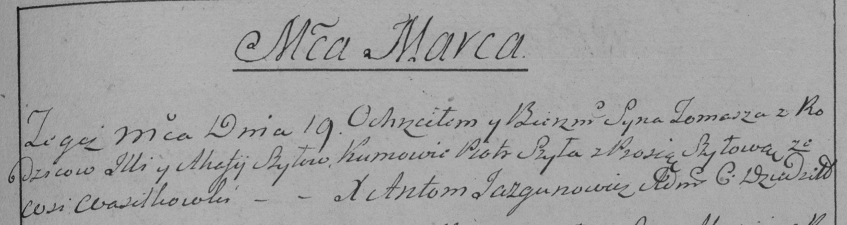 Mca Marca
Tegoż mca Dnia 19. Ochrzciłem y Bierzm: Syna Tomasza z Ro
dzicow Illi y Ahafij Szyłow. Kumowie Piotr Szyła z Rosią Szyłową ze
wsi Wasilkowki - - X Antoni Jazgunowicz Adm: C: